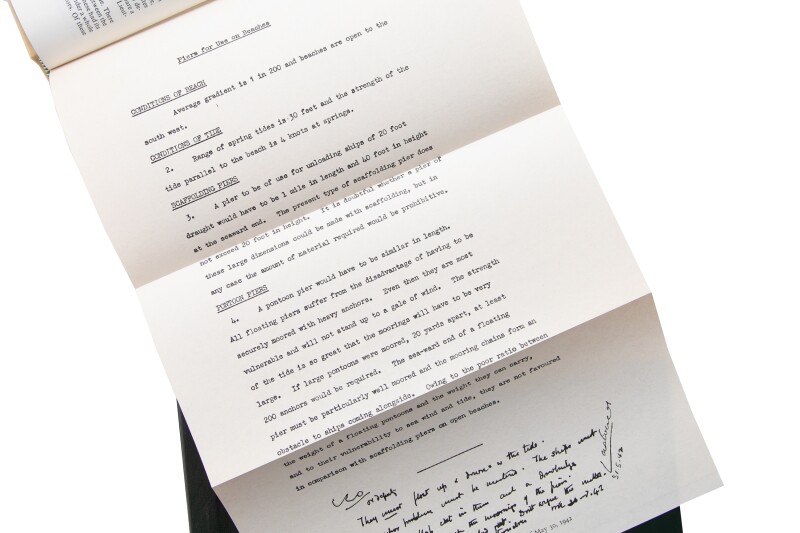 Piers for Use on Beaches
CONDITIONS OF BEACH
Average gradient is 1 in 200 and beaches are open to the
south west.
CONDITIONS OF TIDE
2. Range of spring tides is 30 feet and the strength of the
tide parallel to the beach is 4 knots at springs.
SCAFFOLDING PIERS
3. A pier to be of use for unloading ships of 20 foot
draught would have to be 1 mile in length and 40 foot in height
at the seaward end. The present type of scaffolding pier does
not exceed 20 foot in height. It is doubtful whether a pier of
these large dimensions could be made with scaffolding, but in
any case the amount of material required would be prohibitive.
PONTOON PIERS
4. A pontoon pier would have to be similar in length.
All floating piers suffer from the disadvantage of having to be
securely moored with heavy anchors. Even then they are most
vulnerable and will not stand up to a gale of wind. The strength
of the tide is so great that the moorings will have to be very
large. If large pontoons were moored, 20 yards apart, at least
200 anchors would be required. The sea-ward end of a floating
pier must be particularly well moored and the mooring chains form an
obstacle to ships coming alongside. Owing to the poor ratio between
the weight of a floating pontoons and the weight they can carry,
and to their vulnerability to sea wind and tide, they are not favoured
in comparison with scaffolding piers on open beaches.
CCO or deputy
They must float up & down with the tide.
The anchor problem must be mastered. The ships must
have a side flap cut in them and a drawbridge
the moorings of the piers.
Don't argue the matter.
30.5.42
of May 30, 1942